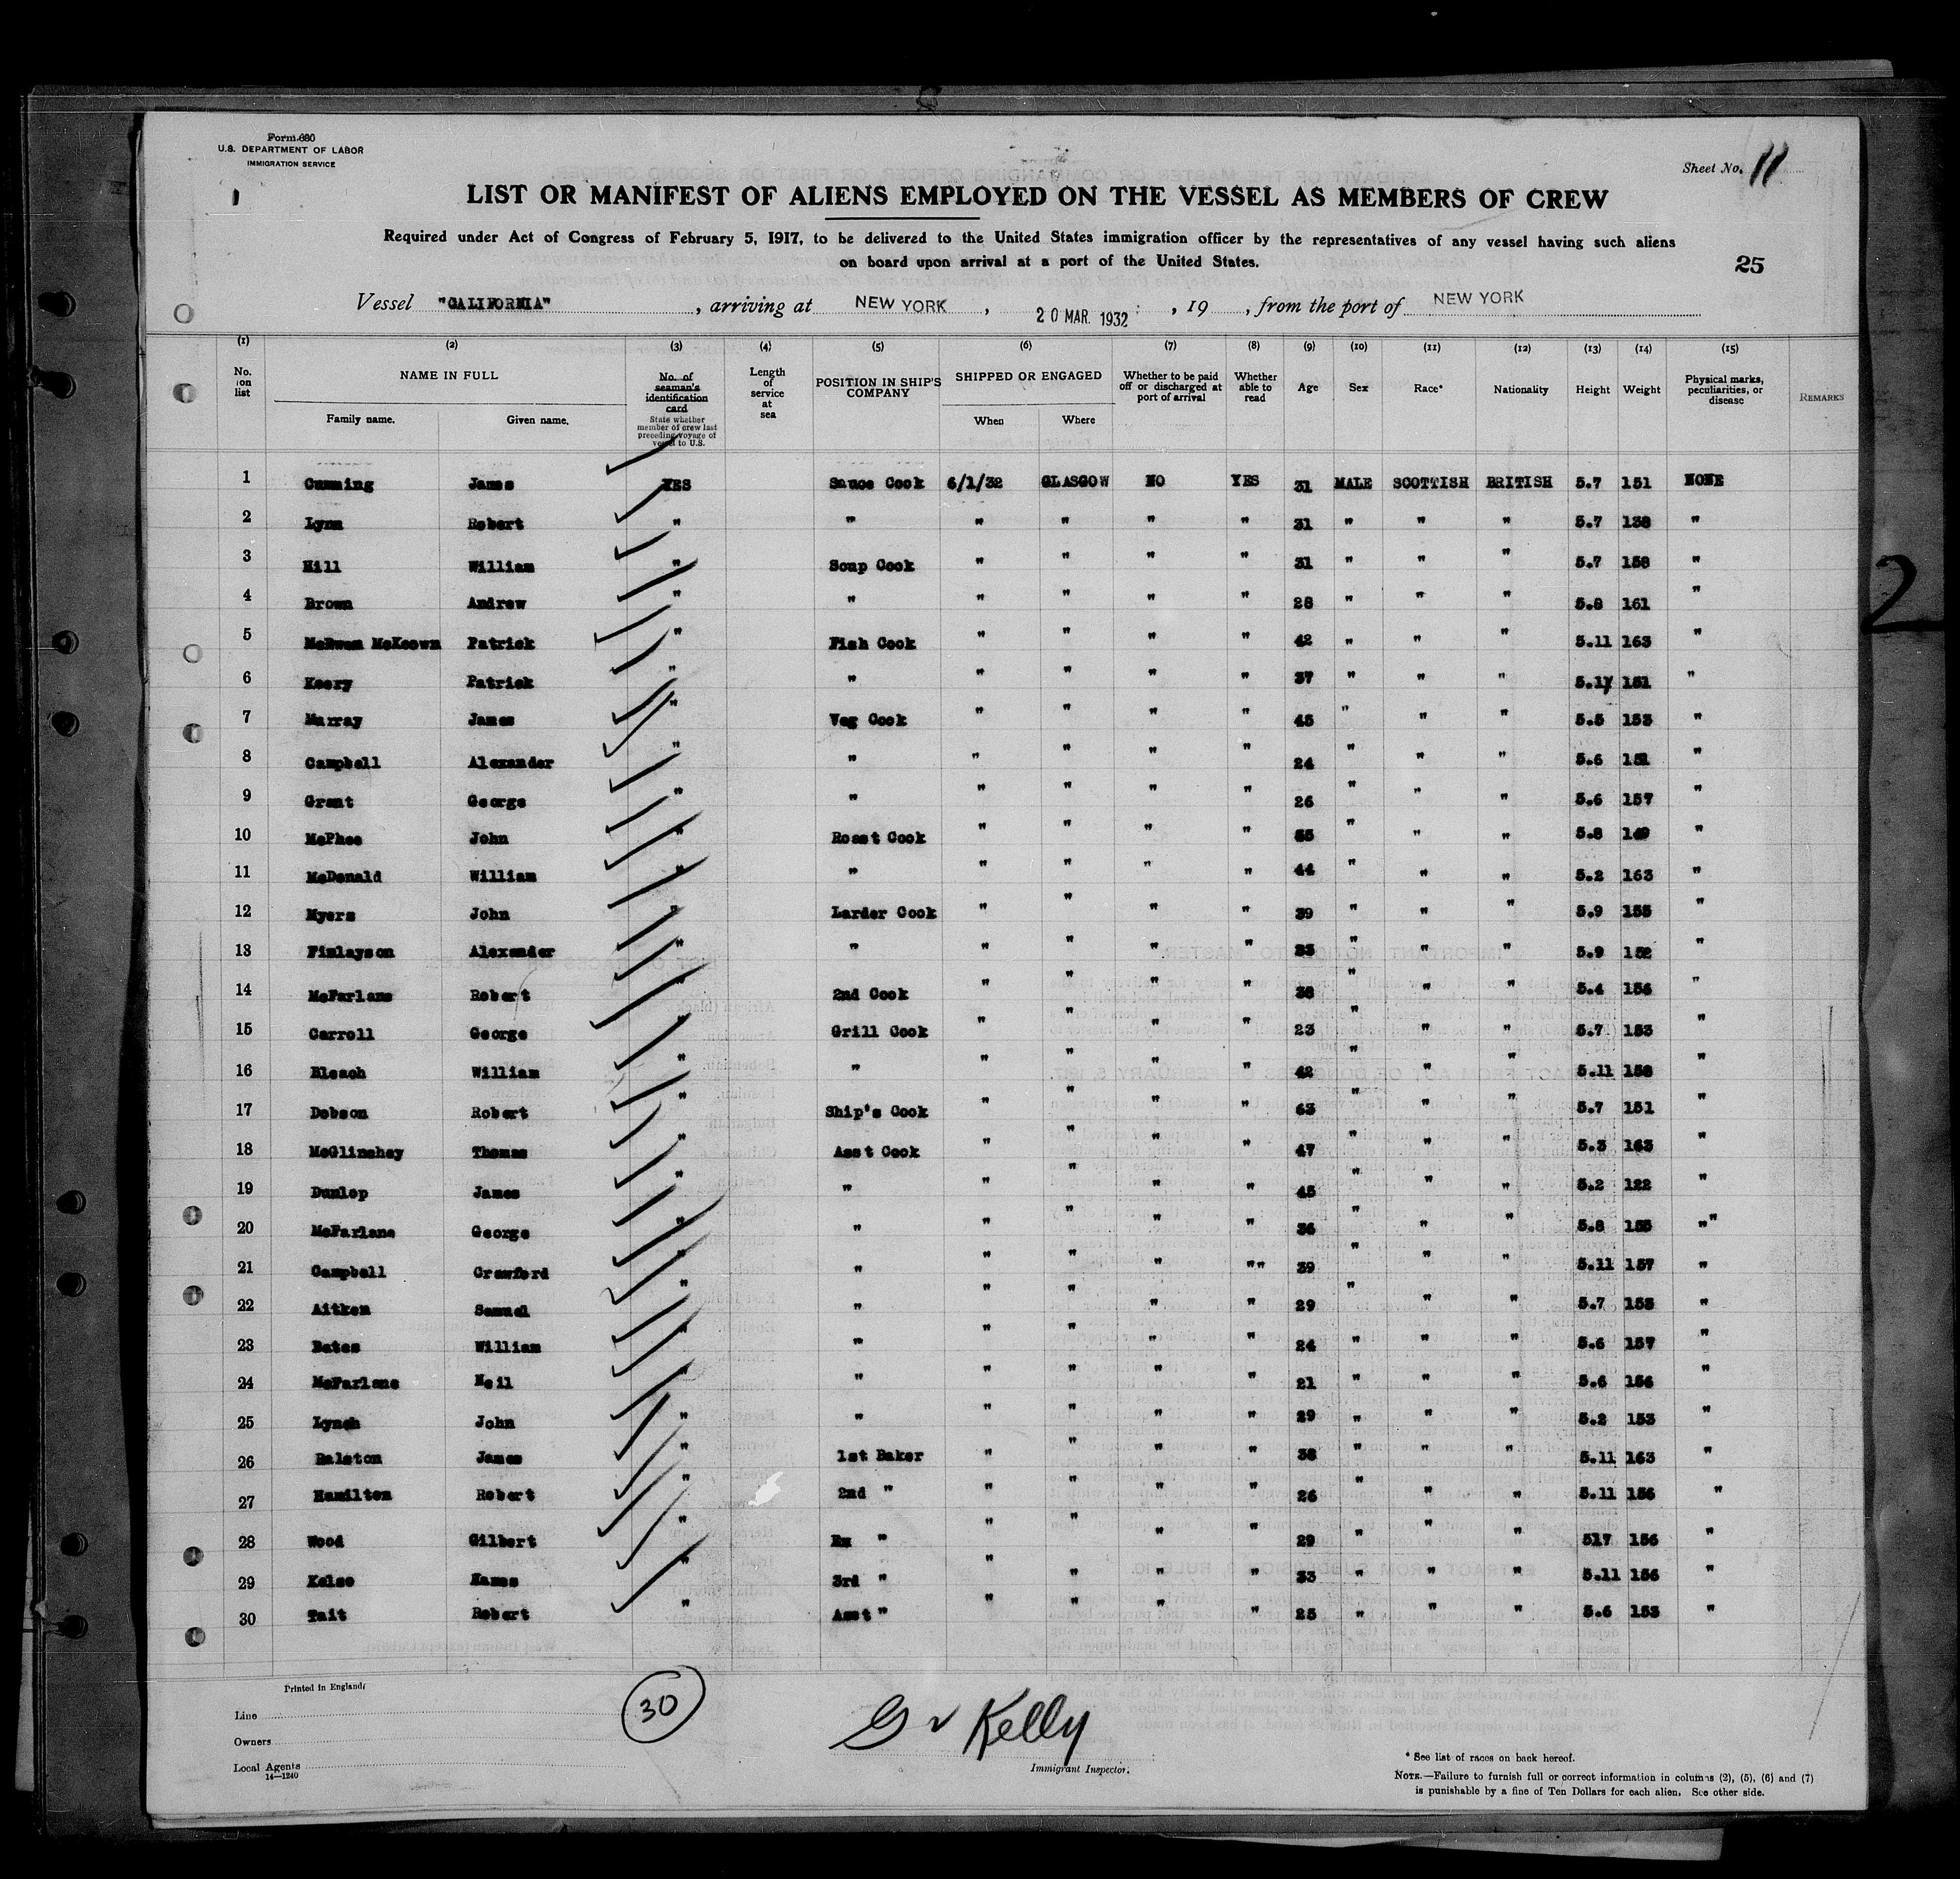 Form 680
U.S. DEPARTMENT OF LABOR
IMMIGRATION SERVICE
Sheet No. 11
LIST OR MANIFEST OF ALIENS EMPLOYED ON THE VESSEL AS MEMBERS OF CREW
Required under Act of Congress of February 5, 1917, to be delivered to the United States immigration officer by the representatives of any vessel having such aliens
on board upon arrival at a port of the United States.
25
Vessel "CALIFORNIA", arriving at NEW YORK, 20 MAR. 1932, 19 , from the port of NEW YORK
(1) (2) (3) (4) (5) (6) (7) (8) (9) (10) (11) (12) (13) (14) (15)
No. on list NAME IN FULL Family name. Given name. No. of seaman's identification card State whether member of crew last preceding voyage of vessel to U.S. Length of service at sea POSITION IN SHIP'S COMPANY SHIPPED OR ENGAGED When Where Whether to be paid off or discharged at port of arrival Whether able to read Age Sex Race* Nationality Height Weight Physical marks, peculiarities, or disease REMARKS
1 Cumming James YES Sauce Cook 6/1/32 GLASGOW NO YES 31 MALE SCOTTISH BRITISH 5.7 151 NONE
2 Lynn Robert " " " " " " 31 " " " 5.7 138 "
3 Hill William " Soup Cook " " " " 31 " " " 5.7 158 "
4 Brown Andrew " " " " " " 28 " " " 5.8 161 "
5 McKeown Patrick " Fish Cook " " " " 42 " " " 5.11 163 "
6 Keery Patrick " " " " " " 37 " " " 5.1 151 "
7 Murray James " Veg Cook " " " " 45 " " " 5.5 153 "
8 Campbell Alexander " " " " " " 24 " " " 5.6 151 "
9 Grant George " " " " " " 26 " " " 5.6 157 "
10 McPhee John " Roast Cook " " " " 55 " " " 5.8 149 "
11 McDonald William " " " " " " 44 " " " 5.2 163 "
12 Myers John " Larder Cook " " " " 39 " " " 5.9 155 "
13 Finlayson Alexander " " " " " " 23 " " " 5.9 152 "
14 McFarlane Robert 2nd Cook " " " " 38 " " " 5.4 156 "
15 Carroll George " Grill Cook " " " " 23 " " " 5.7 153 "
16 Bleach William " " " " " " 42 " " " 5.11 158 "
17 Dobson Robert " Ship's Cook " " " " 63 " " " 5.7 151 "
18 McGlinchey Thomas " Asst Cook " " " " 47 " " " 5.3 163 "
19 Dunlop James " " " " " " 45 " " " 5.2 122 "
20 McFarlane George " " " " " " 36 " " " 5.8 155 ""
21 Campbell Crawford " " " " " "" 39 " " " 5.11 157 "
22 Aitken Samuel " " " " " " 29 " " " 5.7 155 "
23 Bates William " " " " " " 24 " " " 5.6 157 "
24 McFarlane Neil " " " " " " 21 " " " 5.6 156 "
25 Lynch John " " " " " " 29 " " " 5.2 153 "
26 Ralston James " 1st Baker " " " " 38 " " " 5.11 163 "
27 Hamilton Robert " 2nd " " " " " 26 " " " 5.11 156 "
28 Wood Gilbert " " " " " " 29 " " " 517 156 "
29 Kelso Hames " 3rd " " " " " 33 " " " 5.11 156 "
30 Tait Robert " Asst " " " " " 25 " " " 5.6 153 "
2
Printed in England
30
Line
Owners
Local Agents
14—1240
G v Kelly
Immigrant Inspector.
* See list of races on back hereof.
NOTE.—Failure to furnish full or correct information in columns (2), (5), (6) and (7)
is punishable by a fine of Ten Dollars for each alien. See other side.